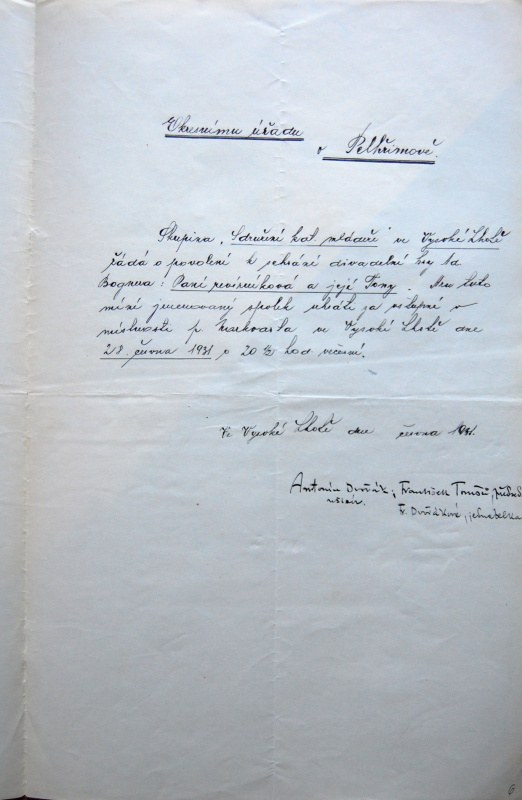 Okresnímu úřadu
v Pelhřimově.
Skupina „Sdružení kat. mládeže" ve Vysoké Lhotě
žádá o povolení k sehrání divadelní hry od
Bognera: Paní revírníková a její Tony. Hru tuto
míní jmenovaný spolek uhráti za vstupné v
místnosti p. Markvarta ve Vysoké Lhotě dne
28. června 1931 o 20 ½ hod večerní.
Ve Vysoké Lhotě dne června 1931.
Antonín Dvořák, František Tomšů, předsed
režisér.
F. Dvořáková, jednatelka
6